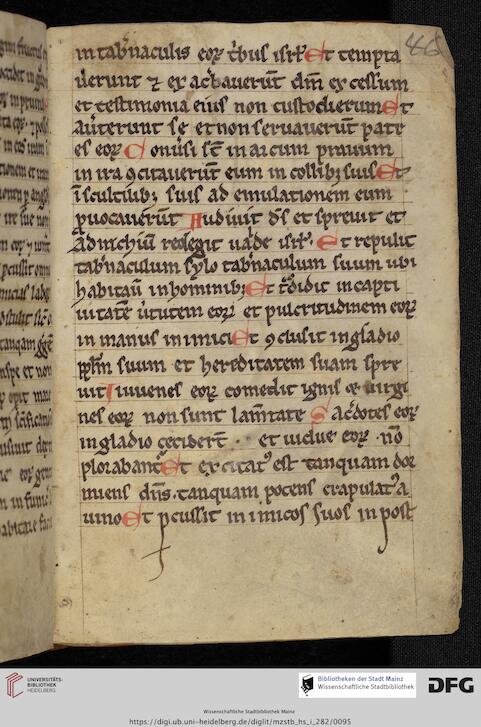 46
in tab'naculis eoꝝ t'bus isrl' Et tempta
uerunt ⁊ ex ac'bauer̄t dm̄ excelsum
et testimonia eius non custodierunt Et
au'terunt se et non seruauer̄t patr
es eoꝝ Conu'si st̄ in arcum prauum
in ira ꝯcitauer̄t eum in collibꝫ suis Et
ī scultilibꝫ suis ad emulationem eum
ꝓuocauer̄t Audiuit d's et spreuit et
Ad nichiu' redegit ualde isrl'. Et repulit
tab'naculum sylo tab'naculum suum ubi
habitau' in hominibꝫ Et t'didit in capti
uitate' u'tutem eoꝝ et pulcritudinem eoꝝ
in manus inimici Et ꝯclusit in gladio
ppl'm suum et hereditatem suam spre
uit Iuuenes eoꝝ comedit ignis et uirgi
nes eoꝝ non sunt lam̄tate Sac'dotes eoꝝ
in gladio cecider̄t et uidue eoꝝ nō
plorabant' Et excitat' est tanquam dor
miens dn̄s. tanquam potens crapulat' a
uino Et ꝑcussit inimicos suos in post
UNIVERSITÄTS-
BIBLIOTHEK
HEIDELBERG
Bibliotheken der Stadt Mainz
Wissenschaftliche Stadtbibliothek
DFG
Wissenschaftliche Stadtbibliothek Mainz
https://digi.ub.uni-heidelberg.de/diglit/mzstb_hs_i_282/0095